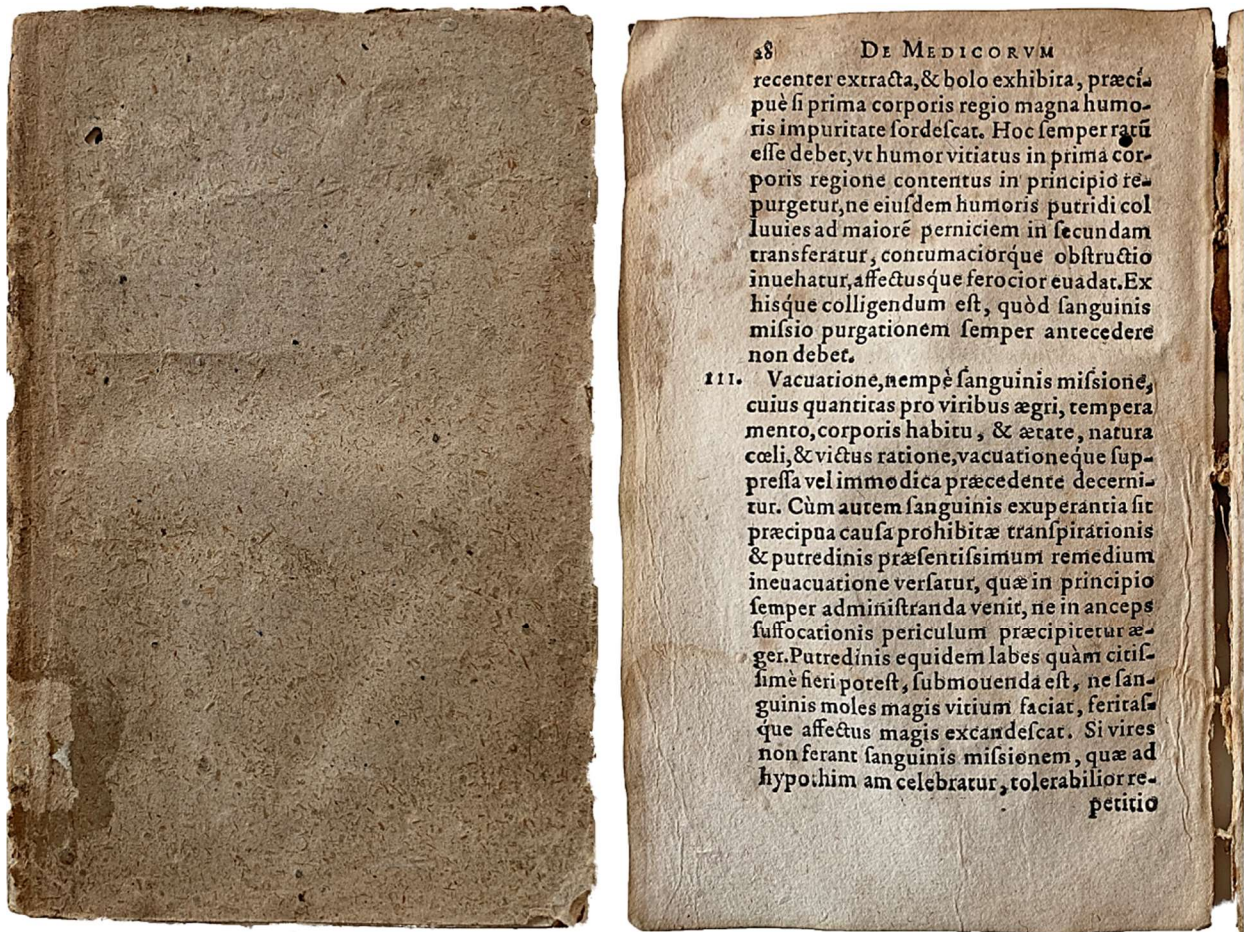 28 DE MEDICORVM
recenter extracta,& bolo exhibita, præci-
puè ſi prima corporis regio magna humo-
ris impuritate ſordeſcat. Hoc ſemper ratũ
eſſe debet,vt humor vitiatus in prima cor-
poris regione contentus in principio re-
purgetur,ne eiuſdem humoris putridi col
luuies ad maiorẽ perniciem in ſecundam
transferatur, contumaciorq́ue obſtructio
inuehatur,affectusq́ue ferocior euadat.Ex
hisq́ue colligendum eſt, quòd ſanguinis
miſsio purgationem ſemper antecedere
non debet.
III. Vacuatione,nempè ſanguinis miſsione,
cuius quantitas pro viribus ægri, tempera
mento,corporis habitu, & ætate, natura
cœli,& victus ratione,vacuationeq́ue ſup-
preſſa vel immodica præcedente decerni-
tur. Cùm autem ſanguinis exuperantia ſit
præcipua cauſa prohibitæ tranſpirationis
& putredinis præſentiſsimum remedium
ineuacuatione verſatur, quæ in principio
ſemper adminiſtranda venit, ne in anceps
ſuffocationis periculum præcipitetur æ-
ger.Putredinis equidem labes quàm citiſ-
ſimè fieri poteſt, ſubmouenda eſt, ne ſan-
guinis moles magis vitium faciat, feritaſ-
q́ue affectus magis excandeſcat. Si vires
non ferant ſanguinis miſsionem, quæ ad
hypothim am celebratur, tolerabilior re-
petitio